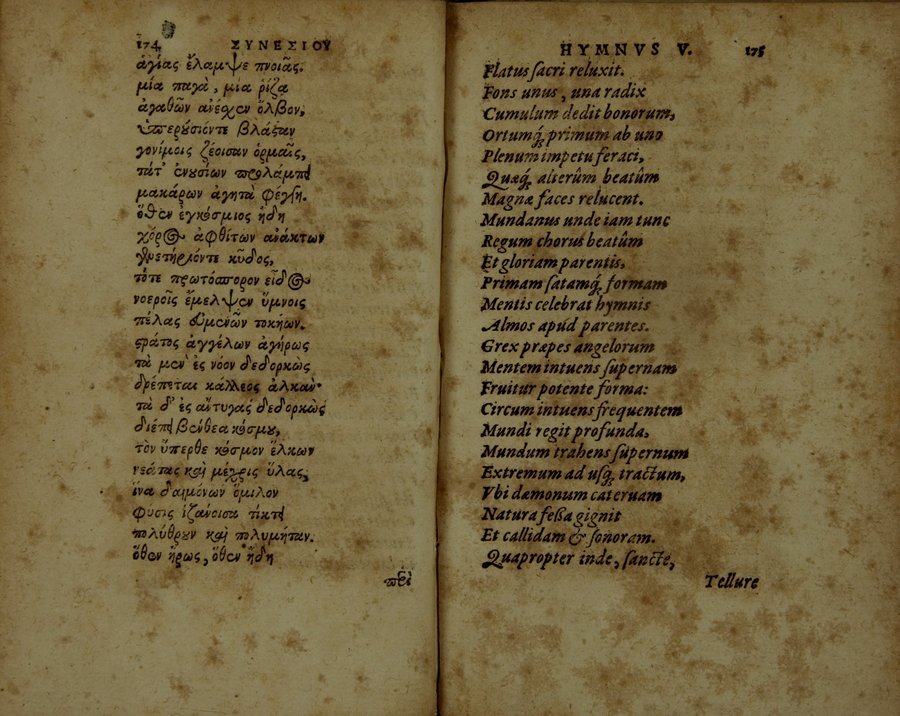 174 ΣΥΝΕΣΙΟΥ
ἁγίας ἔλαμψε πνοιᾶς.
μία παγὰ, μία ῥίζα
ἀγαθῶν ἀνέσχεν ὄλβον,
ὑπερουσιόν τε βλάσαν
γονίμοις ζέοισαν ὁρμαῖς,
τά τ' ἐνουσίων προλάμπει
μακάρων ἀγητὰ φέγγη.
ὅθεν ἐγκόσμιος ἤδη
χόρος ἀφθίτων ἀνάκτων
γενετήριόν τε κῦδος,
τό τε πρωτόσπορον εἶδος
νοεροῖς ἔμελψεν ὕμνοις
πέλας εὐμενῶν τοκήων.
στρατὸς ἀγγέλων ἀγήρως
τὰ μὲν ἐς νόον δεδορκὼς
δρέπεται κάλλεος ἀλκαν·
τὰ δ' ἐς ἄντυγας δεδορκὼς
διέπει βένθεα κόσμου,
τὸν ὕπερθε κόσμον ἕλκων
νεάτας καὶ μέχρις ὕλας,
ἵνα δαιμόνων ὅμιλον
φυσις ἱζάνοισα τίκτει
πολύθρουν καὶ πολυμήταν.
ὅθεν ἥρως, ὅθεν ἤδη
περὶ
HYMNVS V. 175
Flatus sacri reluxit.
Fons unus, una radix
Cumulum dedit bonorum,
Ortumq́; primum ab uno
Plenum impetu feraci,
Quæq́; alterûm beatûm
Magnæ faces relucent.
Mundanus unde iam tunc
Regum chorus beatûm
Et gloriam parentis,
Primam satamq́; formam
Mentis celebrat hymnis
Almos apud parentes.
Grex præpes angelorum
Mentem intuens supernam
Fruitur potente forma:
Circum intuens frequentem
Mundi regit profunda,
Mundum trahens supernum
Extremum ad usq́; tractum,
Vbi dæmonum cateruam
Natura fessa gignit
Et callidam & sonoram.
Quapropter inde, sancte,
Tellure